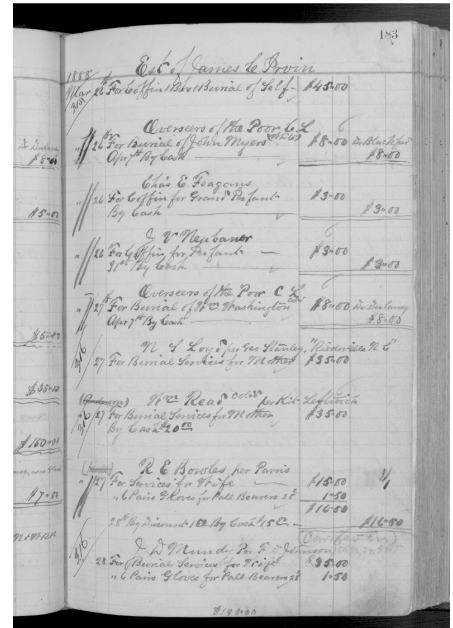 183
1888 Est. of James C Irvin
Mar 26 For Coffin Box & Burial of Self - $45-00
Overseers of the Poor C L
26th For Burial of John Myers $8-00 Dr Blackford
Apr 7th By Cash $8-00
Dr Dulaney
$8-00
Chas E Feagans
26 For Coffin for Grand Infant $3-00
By Cash — $3-00
$5-00
J V Neubaner
26 For Coffin for Infant — $3-00
31st By Cash — $3-00
Overseers of the Poor C L
27th For Burial of Wm Washington $8-00 Dr Dulaney
Apr 7th By Cash $8-00
$5-00
N S Long per Geo Stanley, "Reidsville N C"
27 For Burial Services for Mother $35-00
$35-00
Wm Read Cold per Kit Leftwich
27 For Burial Services for Mother $35-00
By Cash $20.00
$150-00
R E Bowles, per Parris
27 For Services for Wife — $15-00
" 6 Pairs Gloves for Pall Bearers 25 1-50
$16-50
$7-00
28th By Discount 1.50 By Cash $15.00 — $16-50
J W Mundy Per F D Johnson
28 For Burial Services for Wife $35-00
" 6 Pairs Gloves for Pall Bearers 25 1-50
$190-00